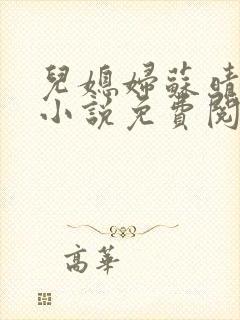 兒媳婦蘇晴
小說免費閱
高華